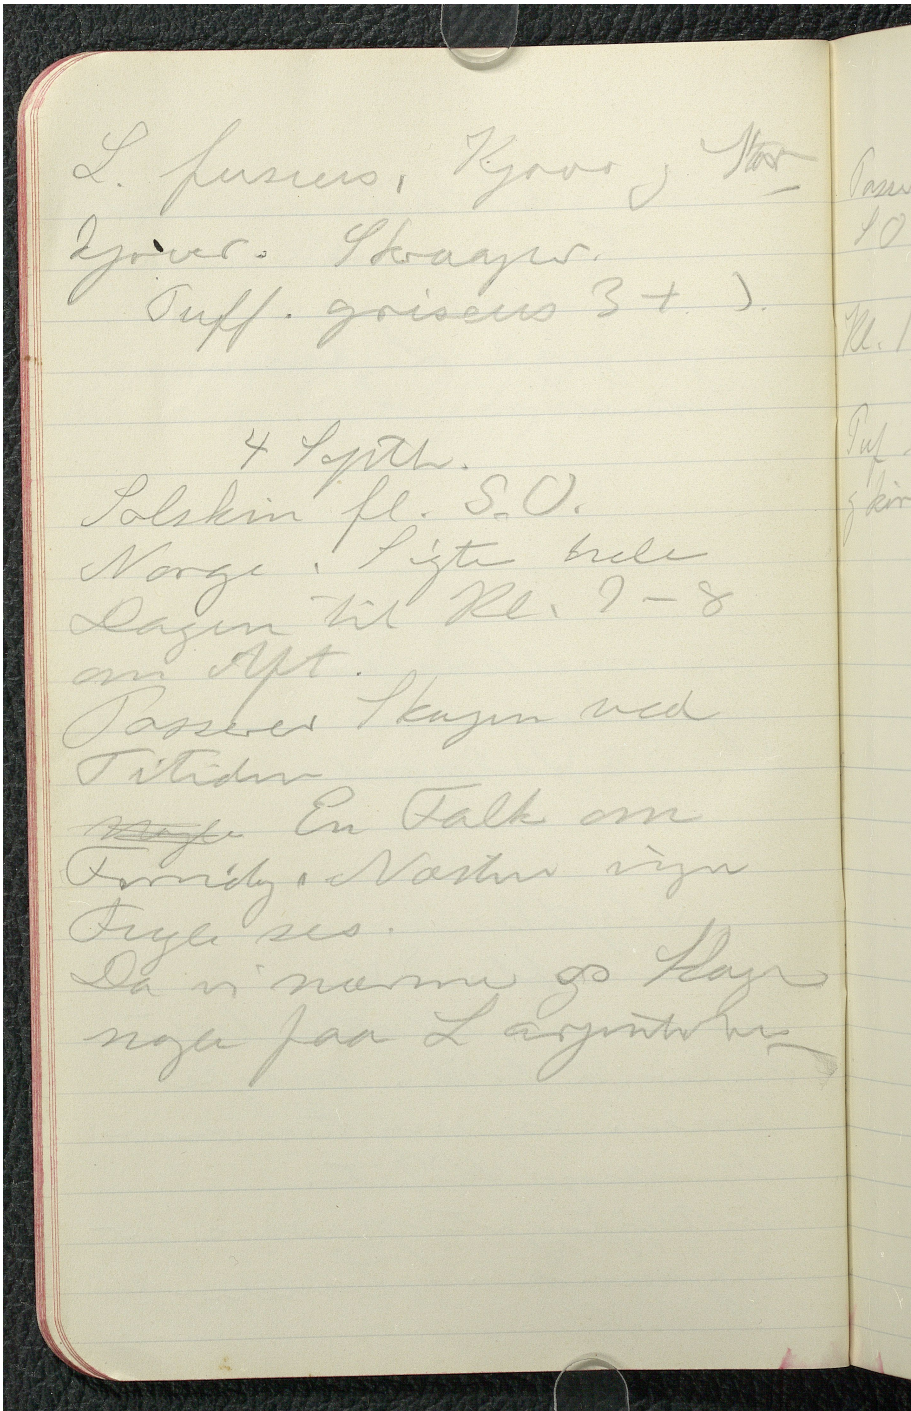 L. fuscus, Kjover og Stor-
kjover. Skraaper.
Puff. griseus 3 + ).
4 Septb.
Solskin fl. S.O.
Norge i Sigte hele
Dagen til Kl. 7-8
om Aft.
Passerer Skagen ved
Titiden
Nogle En Falk om
Formidg. Næsten ingen
Fugle ses.
Da vi nærme os Skagen
nogle faa L argentatus
Passe
SO
Kl. 1
Puf.